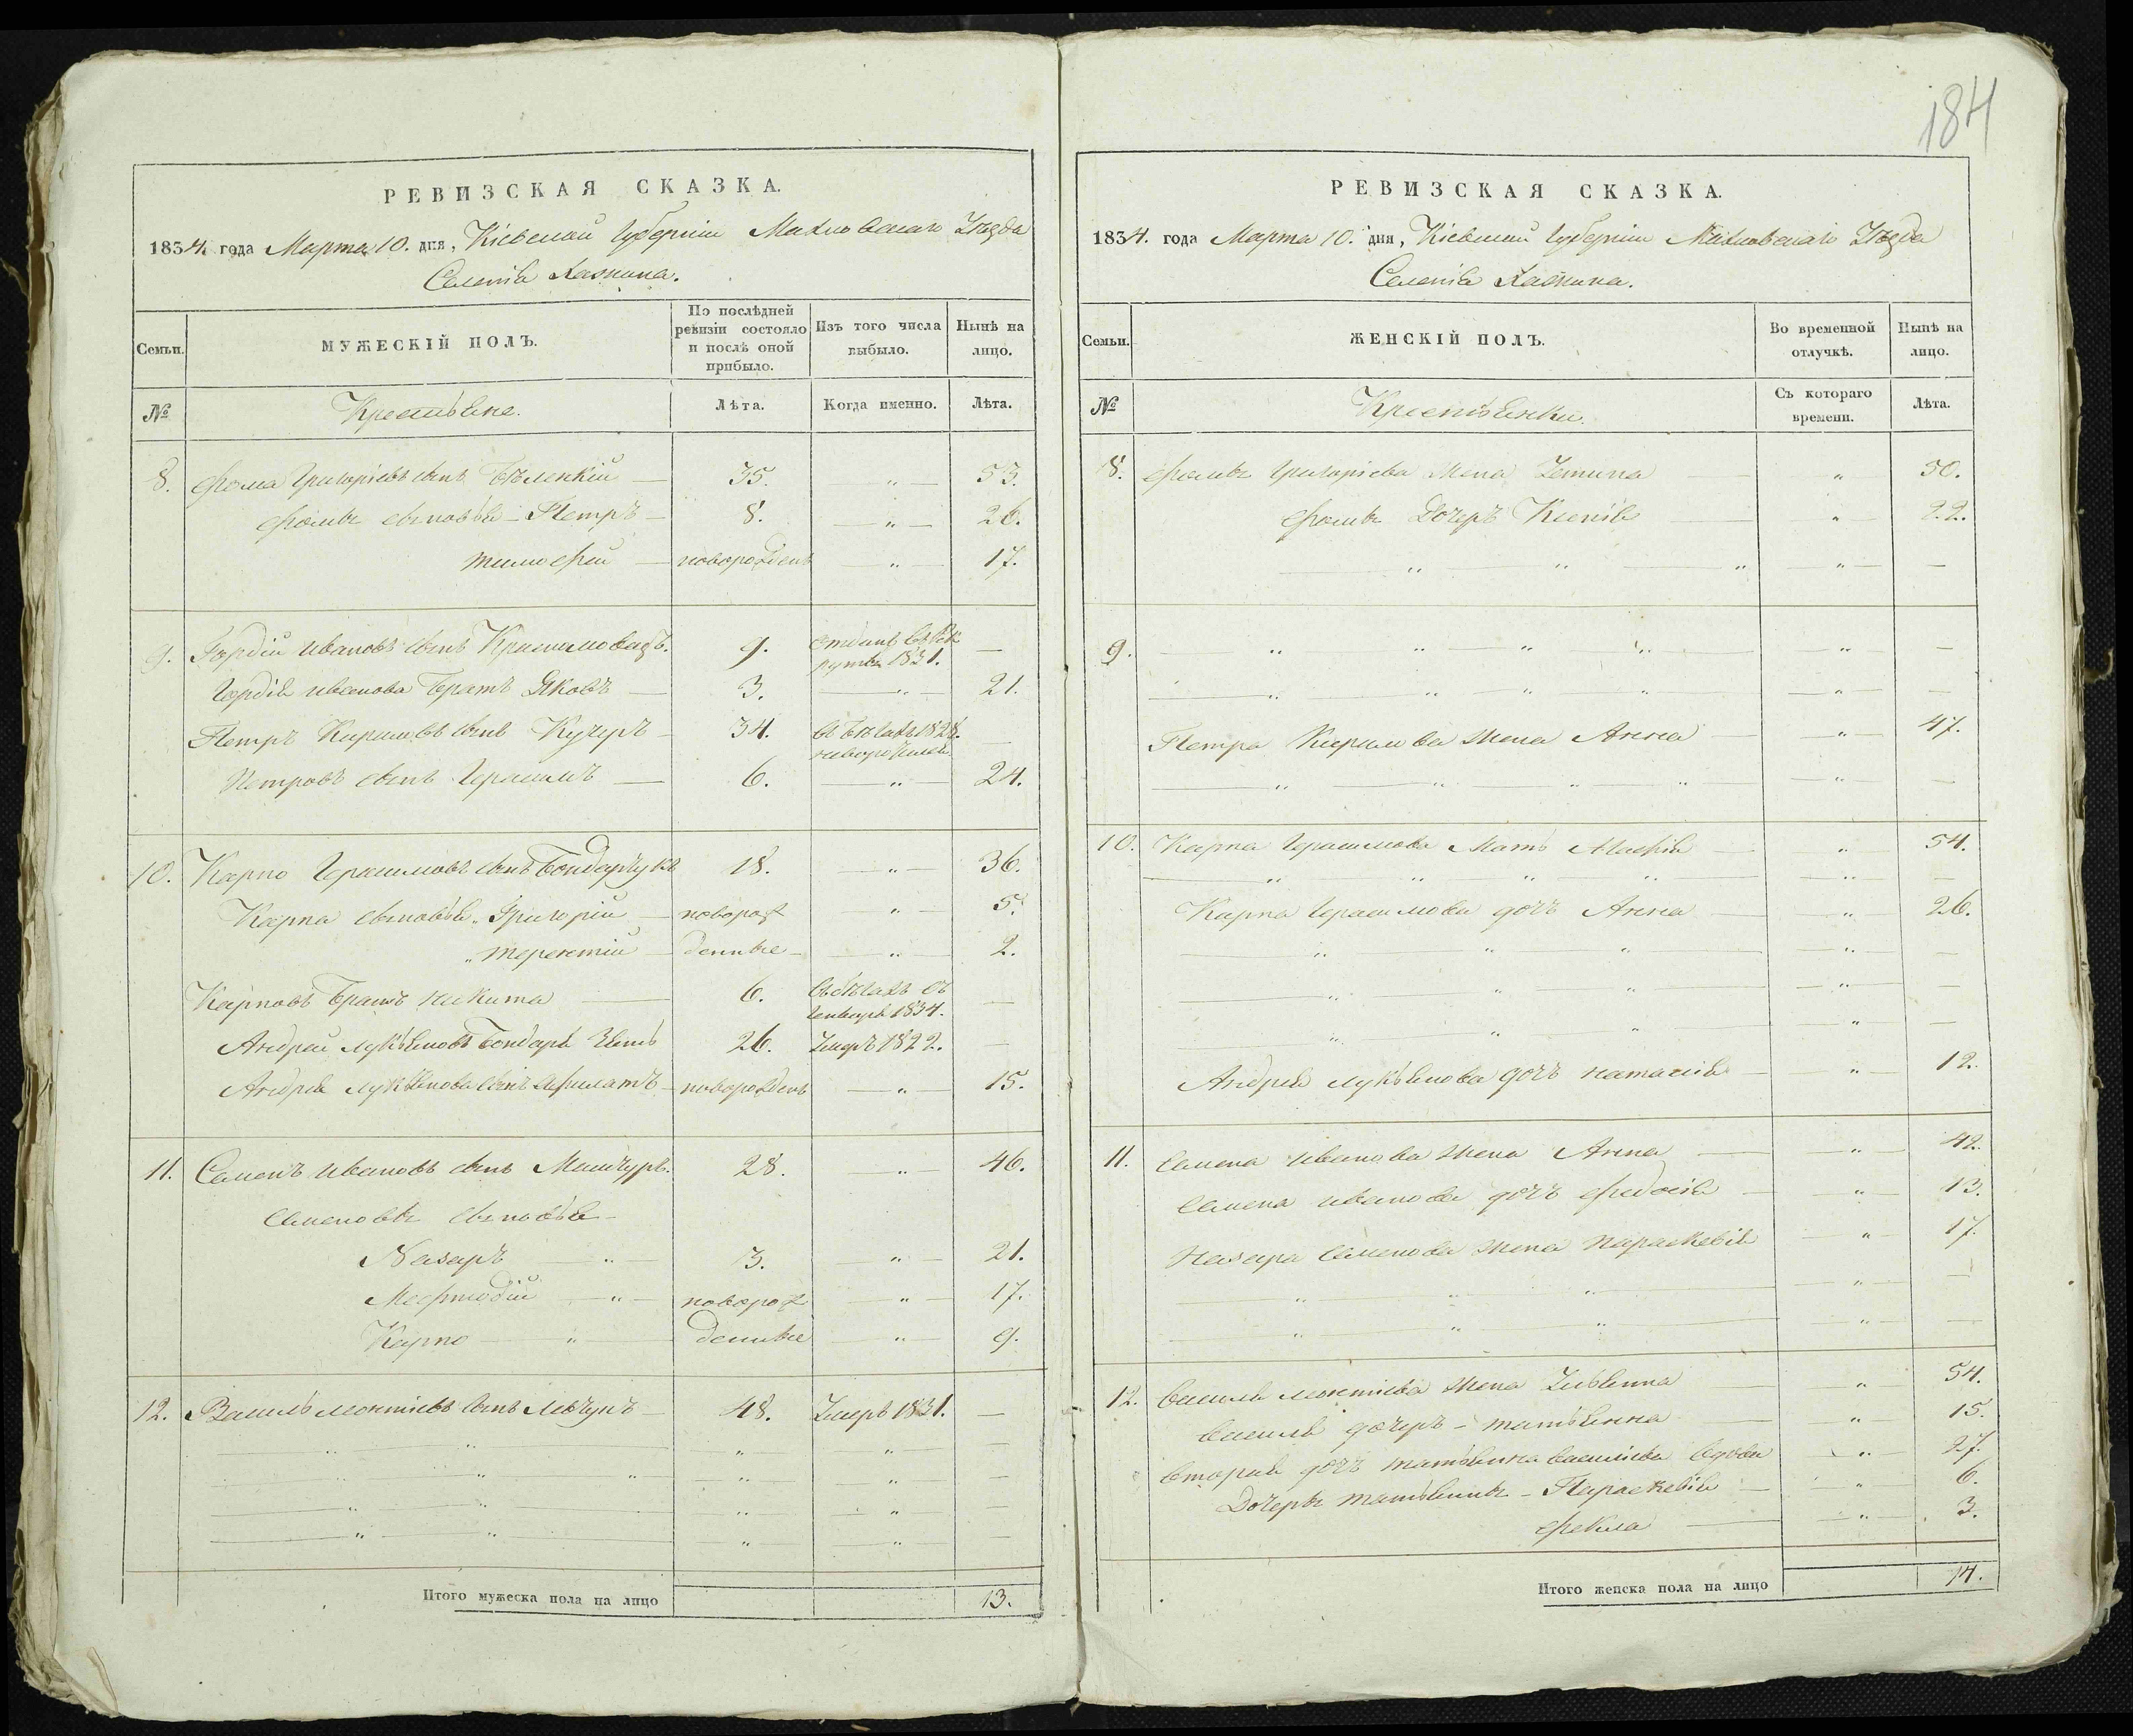 184
РЕВИЗСКАЯ СКАЗКА.
1834. года Марта 10. дня, Кіевской Губерніи Махновскаго Уѣзда
Селенія
МУЖЕСКІЙ ПОЛЪ.
Семьи.
По послѣдней ревизіи состояло и послѣ оной прибыло.
Изъ того числа выбыло.
Нынѣ на лицо.
№
Крестьяне.
Лѣта.
Когда именно.
Лѣта.
8. Фома Григорьевъ сынъ Бѣленкій — 35. „ — 53.
Фомы сыновья – Петръ — 8. — „ — 26.
тимофей — новорожденъ — „ — 17.
9. Гордій ивановъ сынъ 9. отданъ въ рекруты 1831. —
Гордія иванова братъ Яковъ — 3. — „ — 21.
Петръ Кириловъ сынъ Кучеръ — 34. въ бѣгахъ 1828. —
Петровъ сынъ Герасимъ — 6. — „ — 24.
10. Карпо Герасимовъ сынъ Бондарчукъ 18. — „ — 36.
Карпа сыновья „ Григорій — неворож „ — 5.
„ терентій — денные — — „ — 2.
Карповъ братъ никита — 6. въ бѣгахъ съ Генваря 1834. —
Андрей лукьяновъ Бондаря зять 26. Умеръ 1822. —
Андрея лукьянова сынъ Филатъ — новорожденъ — „ — 15.
11. Семенъ ивановъ сынъ Мошуръ. 28. — „ — 46.
Семеновы сыновья —
Назаръ — „ — 3. — „ — 21.
Мефтодій — „ — новорож — „ — 17.
Карпо — „ — денные — „ — 9.
12. Василь леонтіевъ сынъ 48. Умеръ 1831. —
Итого мужеска пола на лицо 13.
РЕВИЗСКАЯ СКАЗКА.
1834. года Марта 10. дня, Кіевской Губерніи Махновскаго Уѣзда
Селенія
Семьи.
ЖЕНСКІЙ ПОЛЪ.
Во временной отлучкѣ.
Нынѣ на лицо.
№
Крестьянки.
Съ котораго времени.
Лѣта.
8. Фомы Григорьева жена — „ — 50.
Фомы Дочеръ Ксенія — „ — 22.
9.
Петра Кирилова жена Анна — „ — 47.
10. Карпа Герасимова Мать — „ 54.
Карпа Герасимова дочъ Анна — „ — 26.
Андрея лукьянова дочъ наталія — „ — 12.
11. Семена иванова жена Анна — „ — 42.
Семена иванова дочъ Федосія — „ — 13.
Назара Семенова жена параскевія — „ — 17.
12. Василя леонтіева жена Ульянна — „ 54.
Василя дочеръ – татьянна — „ — 15.
Вторая дочъ татьянна василіева вдова — „ — 27.
Дочеры татьянны – Параскевія — „ 6.
Фекла — „ — 3.
Итого женска пола на лицо 14.